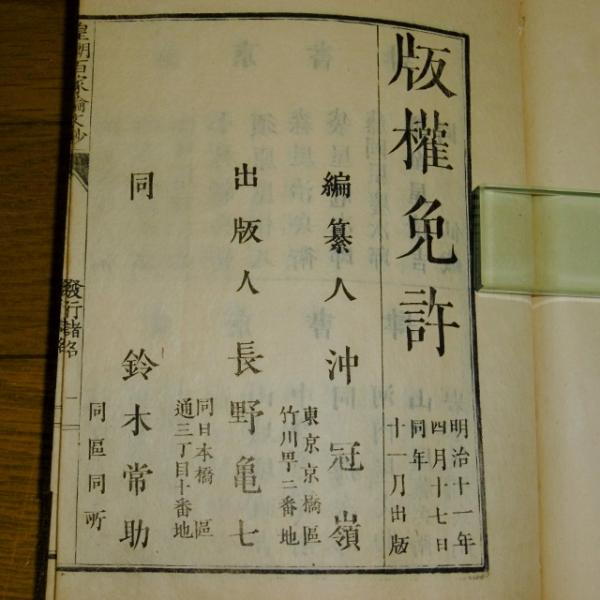 版權免許
明治十一年
四月十七日
同年
十一月出版
編纂人 沖冠嶺
東京京橋區
竹川町二番地
出版人 長野亀七
同日本橋區
通三丁目十番地
同 鈴木常助
同區同所
皇朝百家論文抄
發行諸名